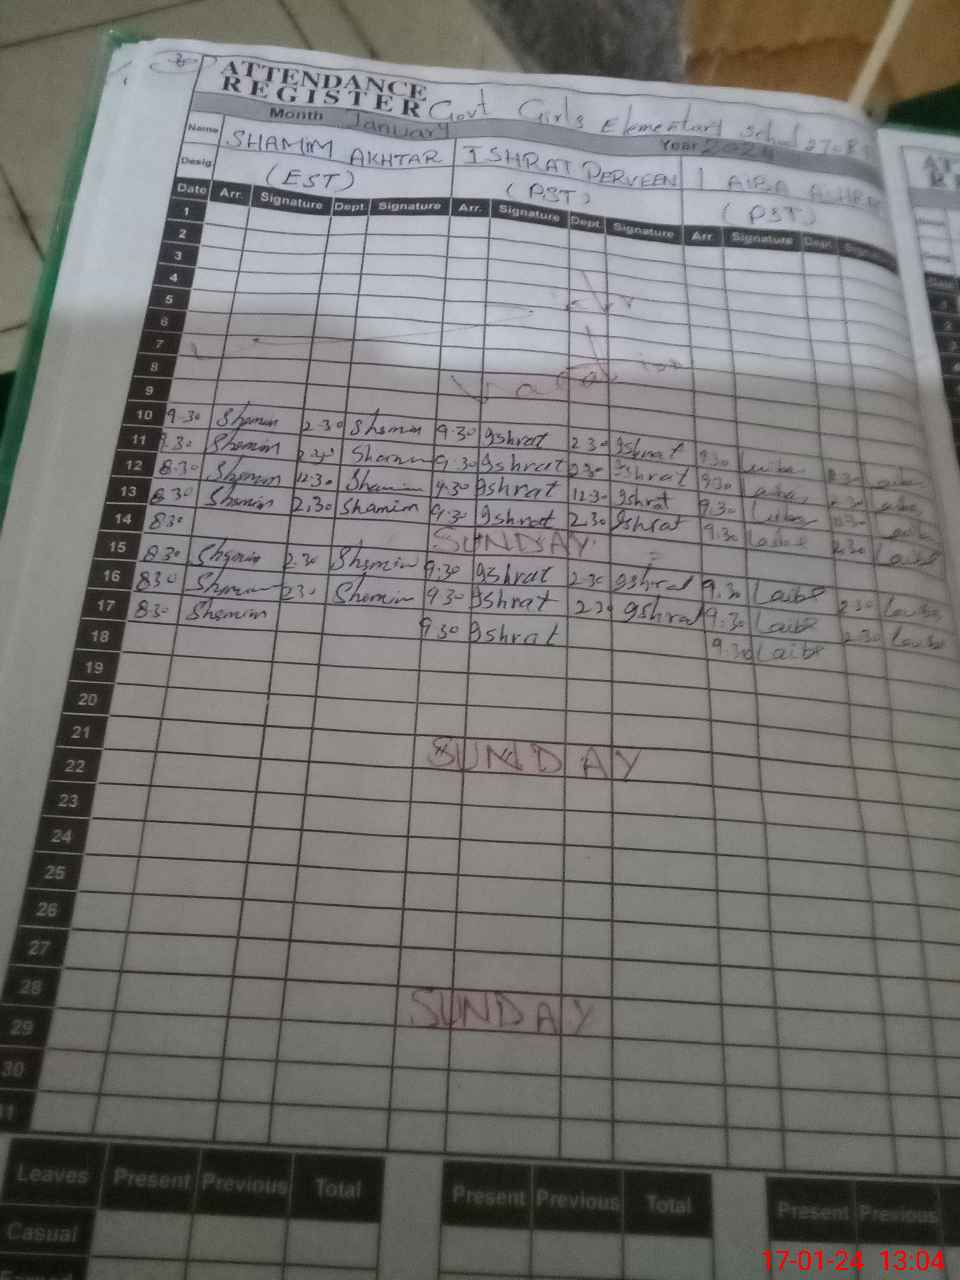 ATTENDANCE REGISTER Govt Girls Elementary School
Month January Year 2024
Name SHAMIM AKHTAR ISHRAT PERVEEN
Desig (EST) (PST) (PST)
Date Arr. Signature Dept. Signature Arr. Signature Dept. Signature Arr Signature Dept.
1
2
3
4
5
6
7
8
9
10 9.30 Shamim 2.30 Shamim 9.30 Ishrat 2.30 Ishrat 9.30 Laiba
11 Shamim Shamim 9.30 Ishrat 2.30 Ishrat 9.30 Laiba
12 8.30 Shamim 12.30 Shamim 9.30 Ishrat 12.30 Ishrat 9.30 Laiba
13 8.30 Shamim 2.30 Shamim 9.30 Ishrat 2.30 Ishrat 9.30 Laiba 2.30 Laiba
14 8.30 SUNDAY
15 8.30 Shamim 2.30 Shamim 9.30 Ishrat 2.30 Ishrat 9.30 Laiba 2.30 Laiba
16 8.30 Shamim 2.30 Shamim 9.30 Ishrat 2.30 Ishrat 9.30 Laiba 2.30 Laiba
17 8.30 Shamim 9.30 Ishrat 9.30 Laiba
18
19
20
21 SUNDAY
22
23
24
25
26
27
28 SUNDAY
29
30
Leaves Present Previous Total Present Previous Total Present Previous
Casual
17-01-24 13:04